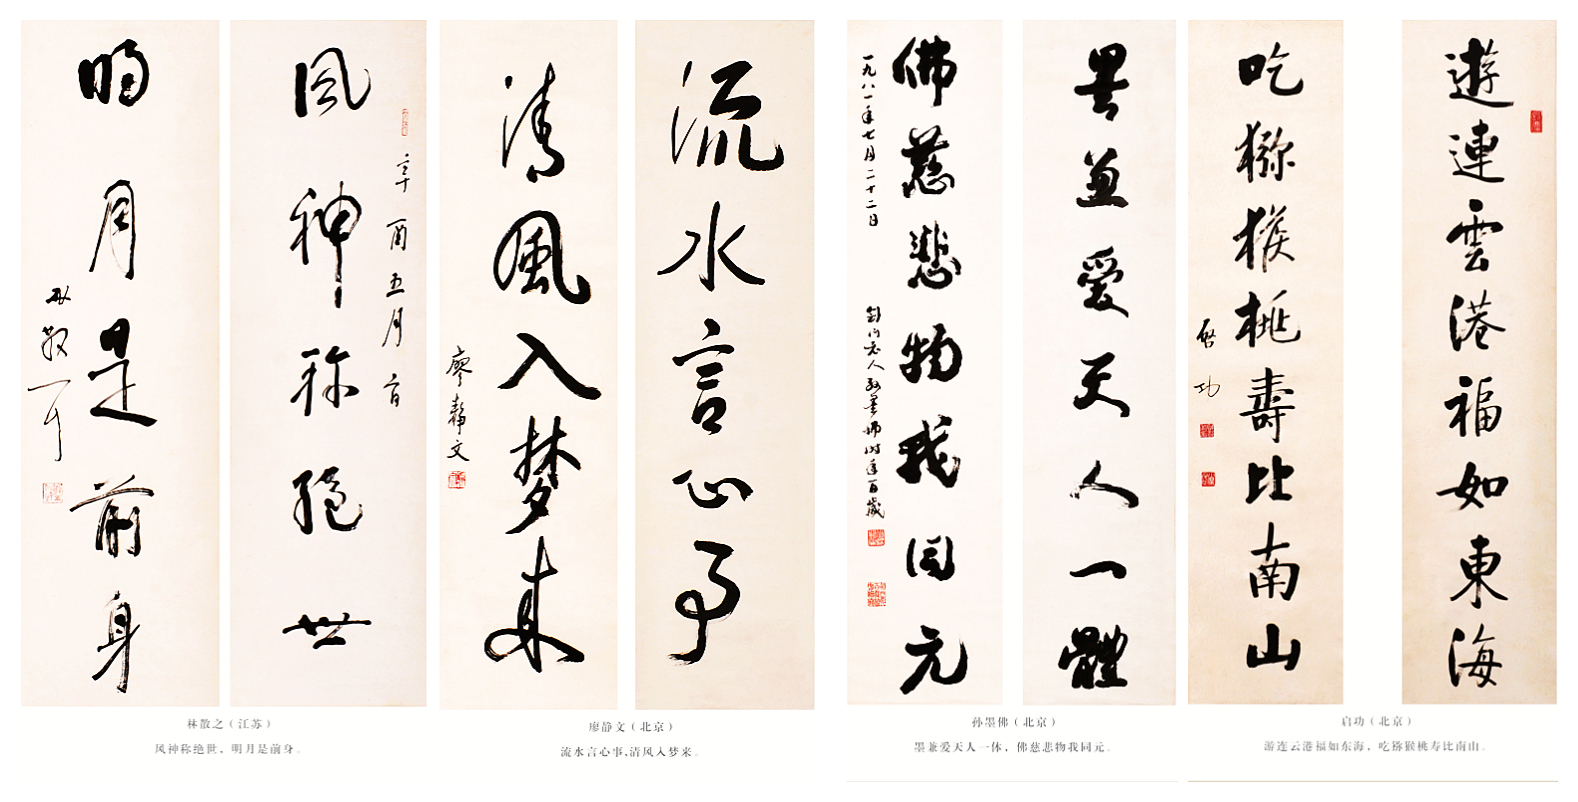 风神称绝世
辛酉五月
明月是前身
林散之
林散之（江苏）
风神称绝世，明月是前身。
流水言心事
清風入梦来
廖靜文
廖静文（北京）
流水言心事,清风入梦来。
墨兼愛天人一體
佛慈悲物我同元
一九八一年七月二十二日
孙墨佛（北京）
墨兼爱天人一体，佛慈悲物我同元。
遊連雲港福如東海
吃猕猴桃壽比南山
啓功
启功（北京）
游连云港福如东海，吃猕猴桃寿比南山。